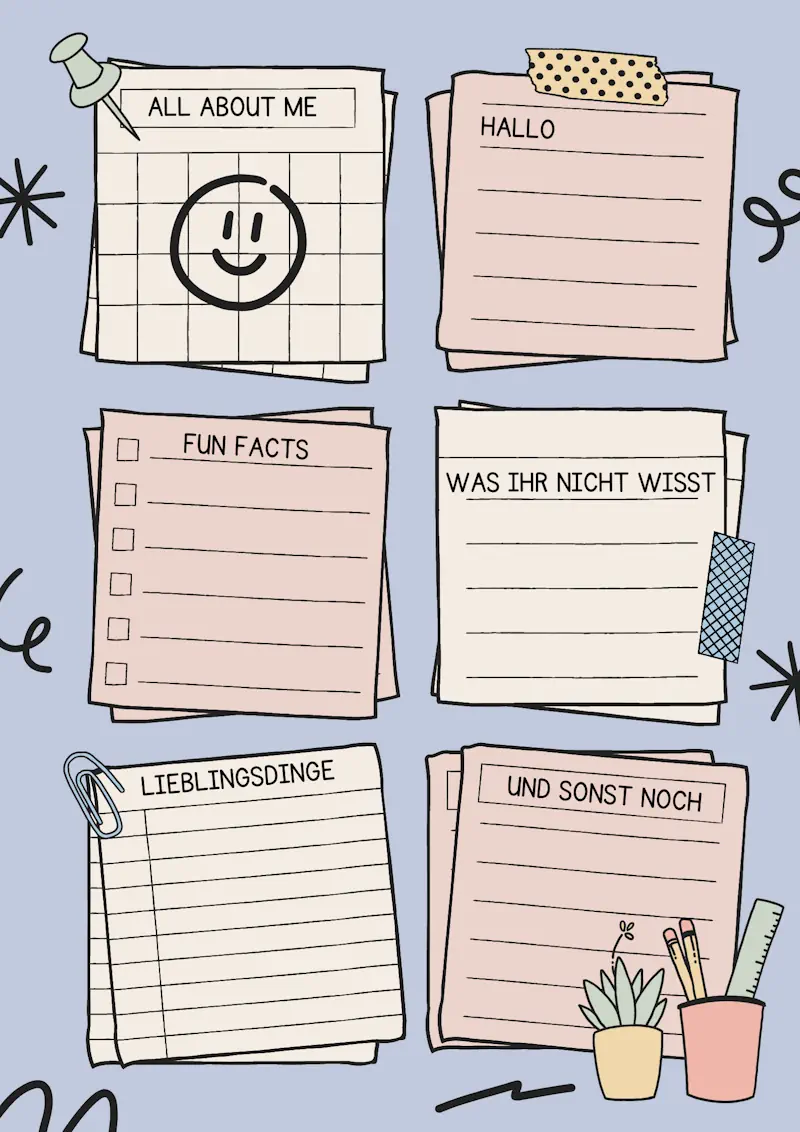 ALL ABOUT ME
HALLO
FUN FACTS
WAS IHR NICHT WISST
LIEBLINGSDINGE
UND SONST NOCH